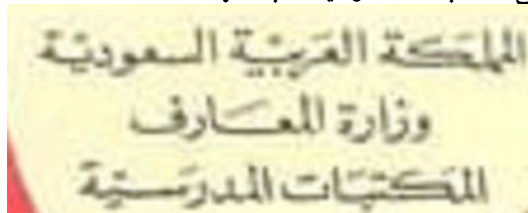 المملكة العربية السعودية
وزارة المعارف
المكتبات المدرسية